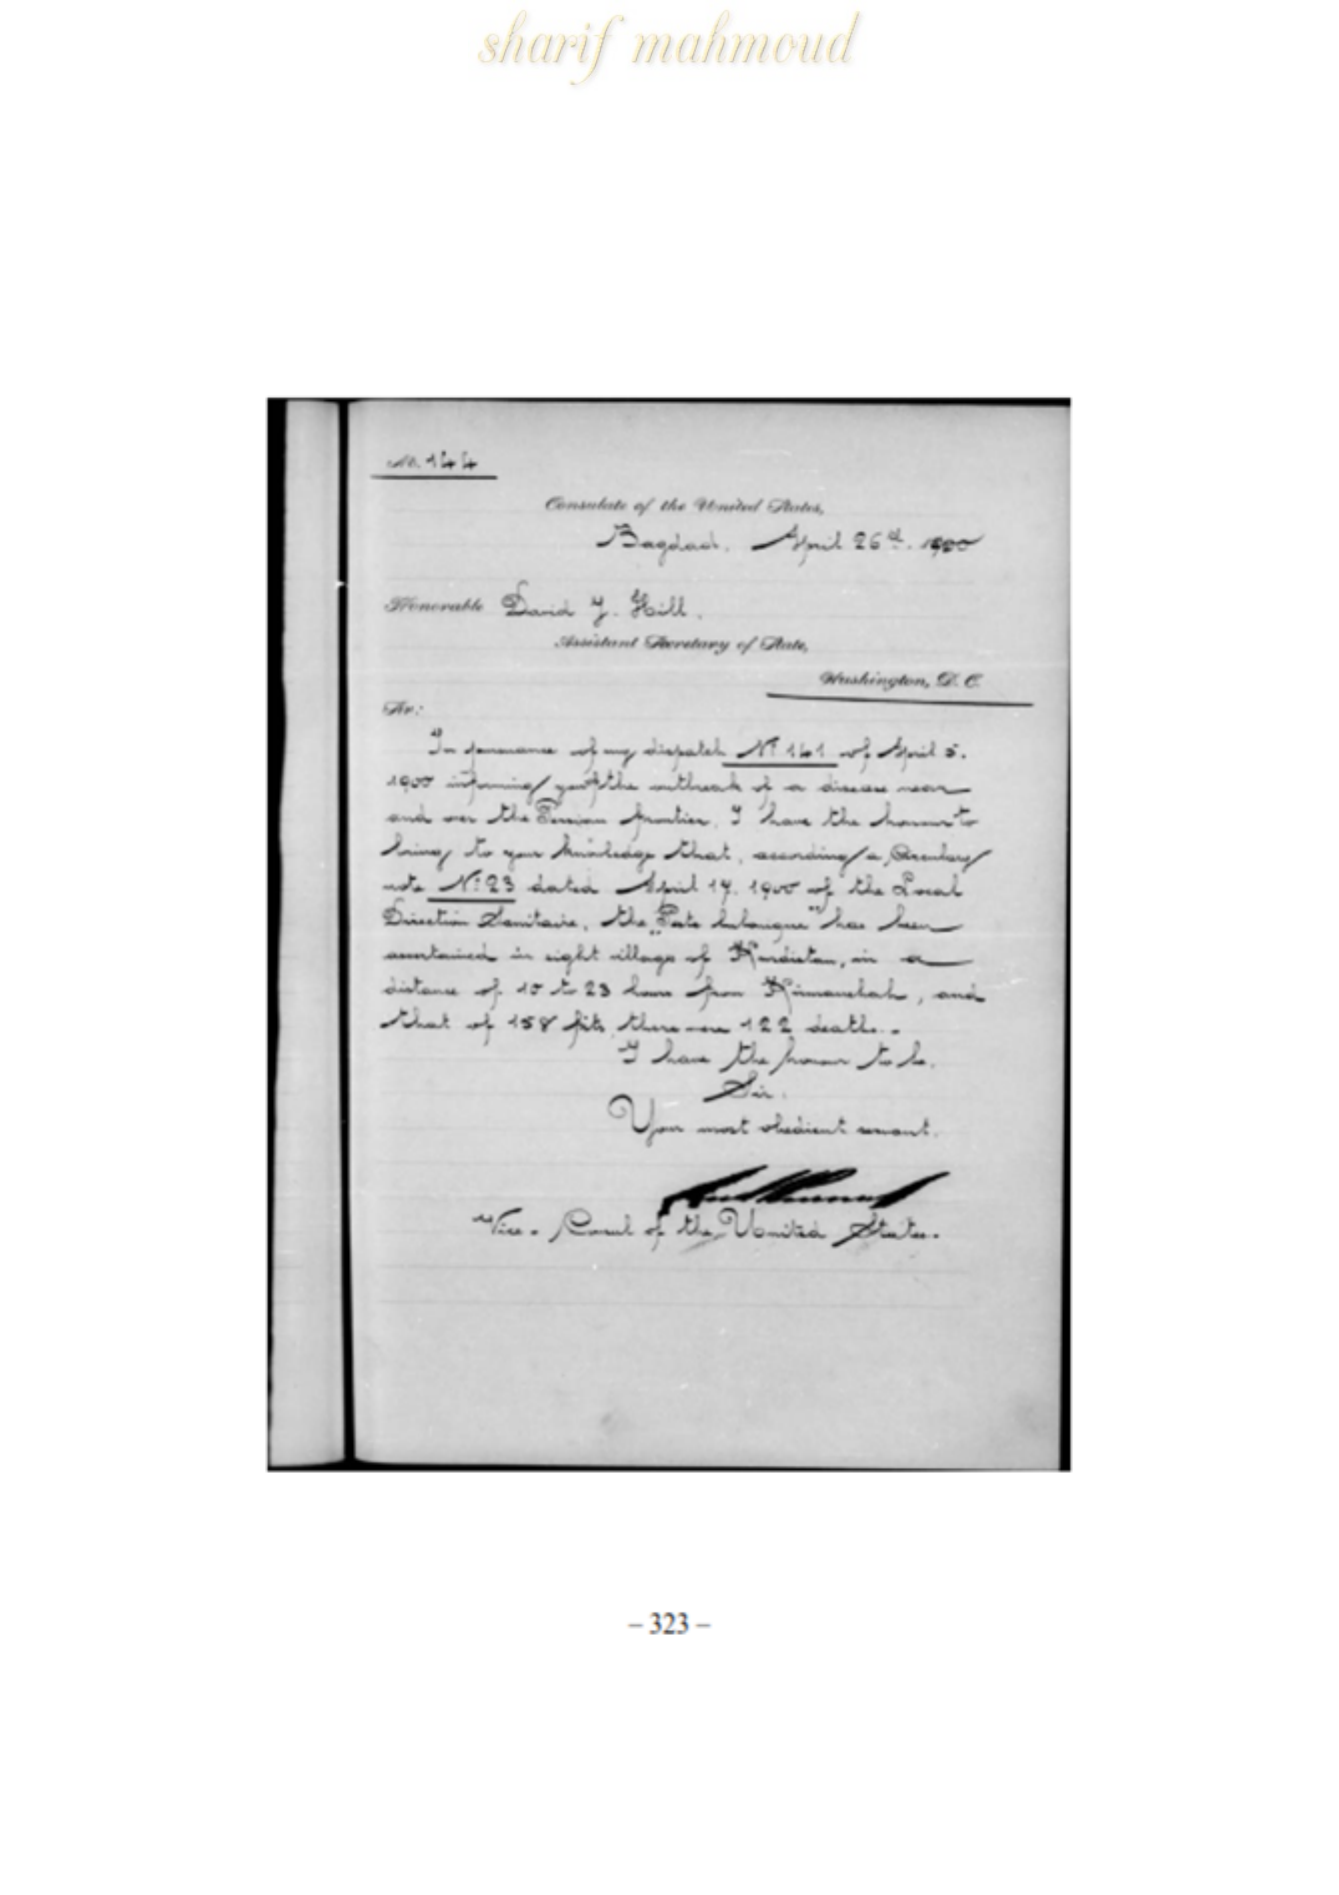 sharif mahmoud
No. 144
Consulate of the United States,
Bagdad. April 26th. 1900
Honorable David J. Hill.
Assistant Secretary of State,
Washington, D. C.
Sir:
In pursuance of my dispatch No 141 of April 5.
1900 informing you of the outbreak of a disease near
and over the Persian frontier, I have the honour to
bring to your knowledge that, according a Circulary
note No 23 dated April 17. 1900 of the Local
Direction Sanitaire, the "Peste bubonique" has been
ascertained in eight village of Kurdistan, in a
distance of 10 to 23 hours from Kirmanshah, and
that of 158 fits, there were 122 death.-
I have the honour to be.
Sir.
Your most obedient servant.
Vice-Consul of the United States.
– 323 –